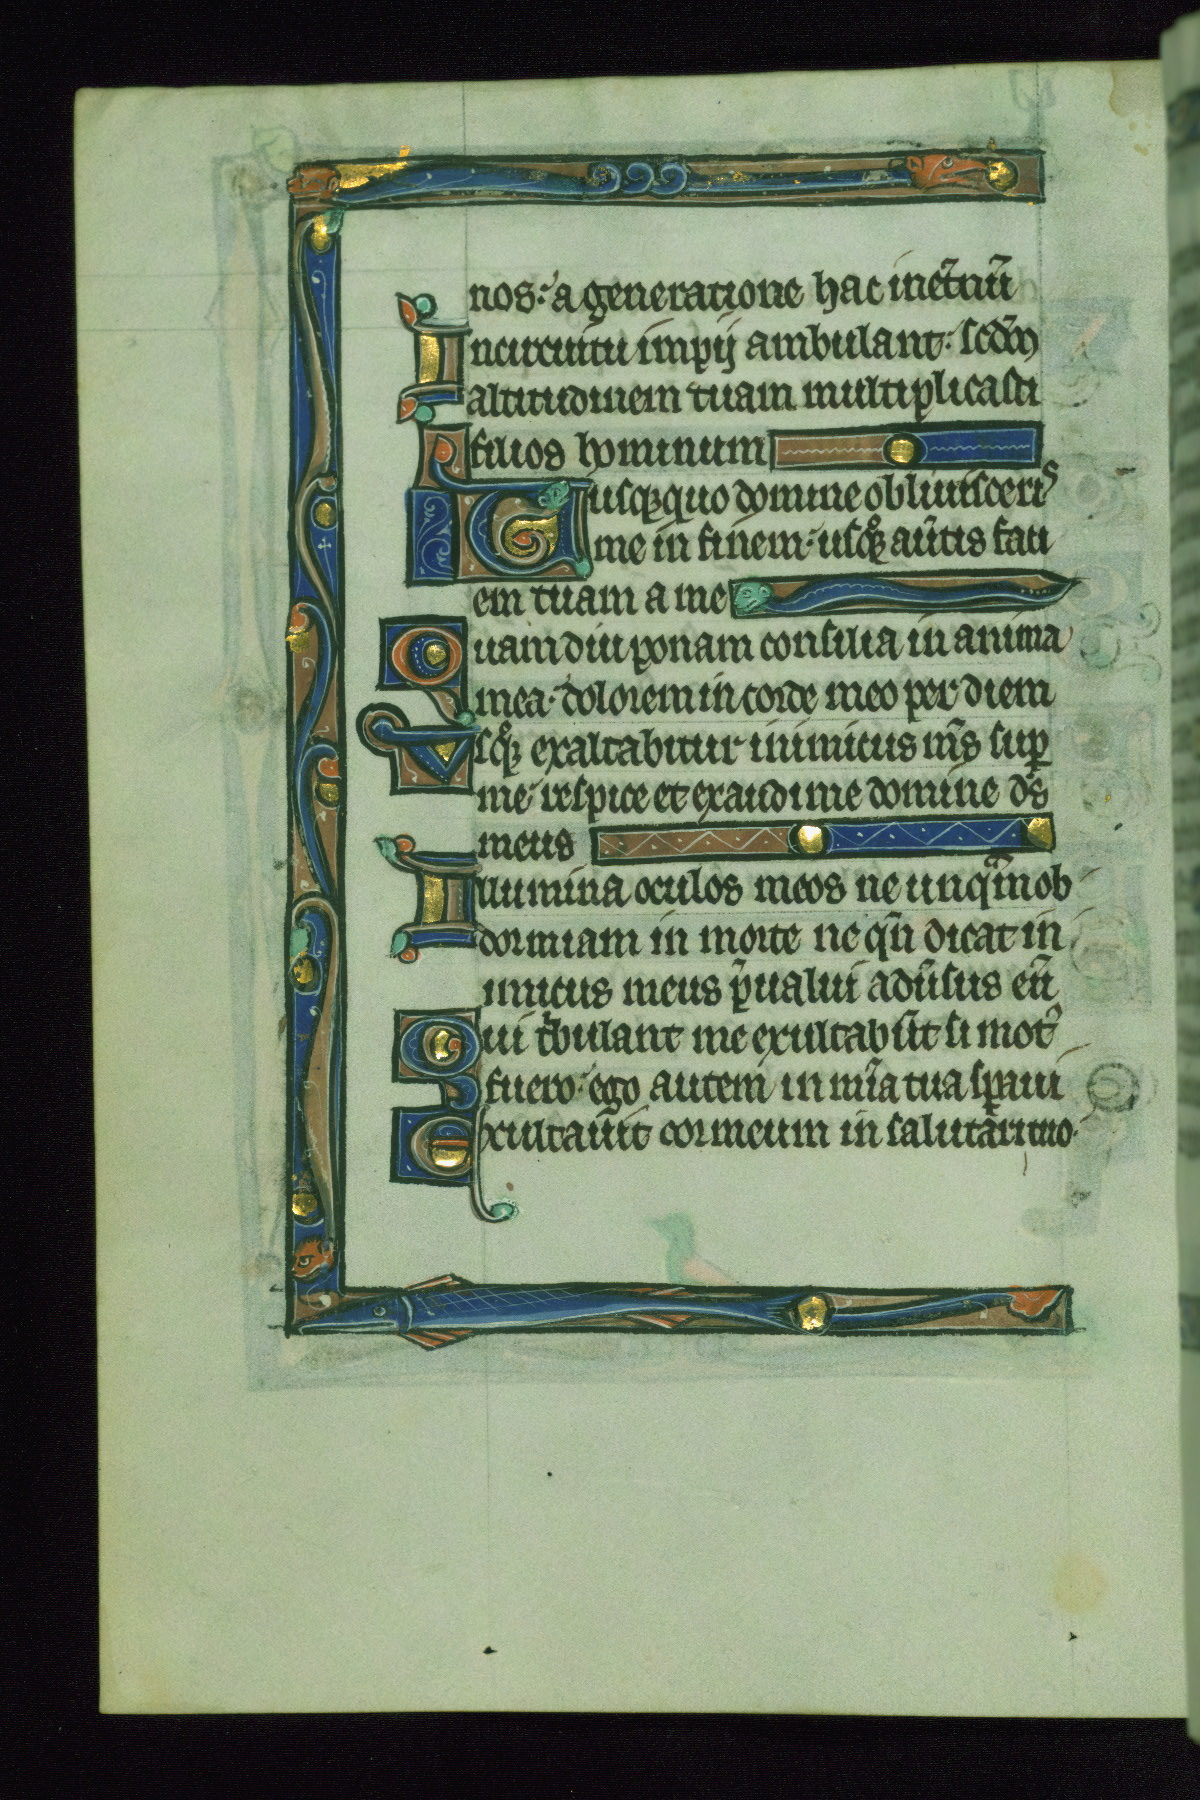 nos: a generatione hac inet̄nū
Incircuitu impij ambulant: scd̄m
altitudinem tuam multiplicasti
filios hominum
Usq;quo domine obliuisceris
me in finem: usq̊; aūtis faci
em tuam a me
Quamdiu ponam consilia in anima
mea· dolorem in corde meo per diem
Vsq̊; exaltabitur inimicus m̄s sup̄
me respice et exaudi me domine d̄s
meus
Illumina oculos meos ne unq̄m ob
dormiam in morte neq̄n dicat in
imicus meus p̄ualui adūsus eū
Qui t̓bulant me exultab̄ut si mot̓
fuero· ego autem in mīa tua sp̄aui
Exultauit cor meum in salutāri tuo·